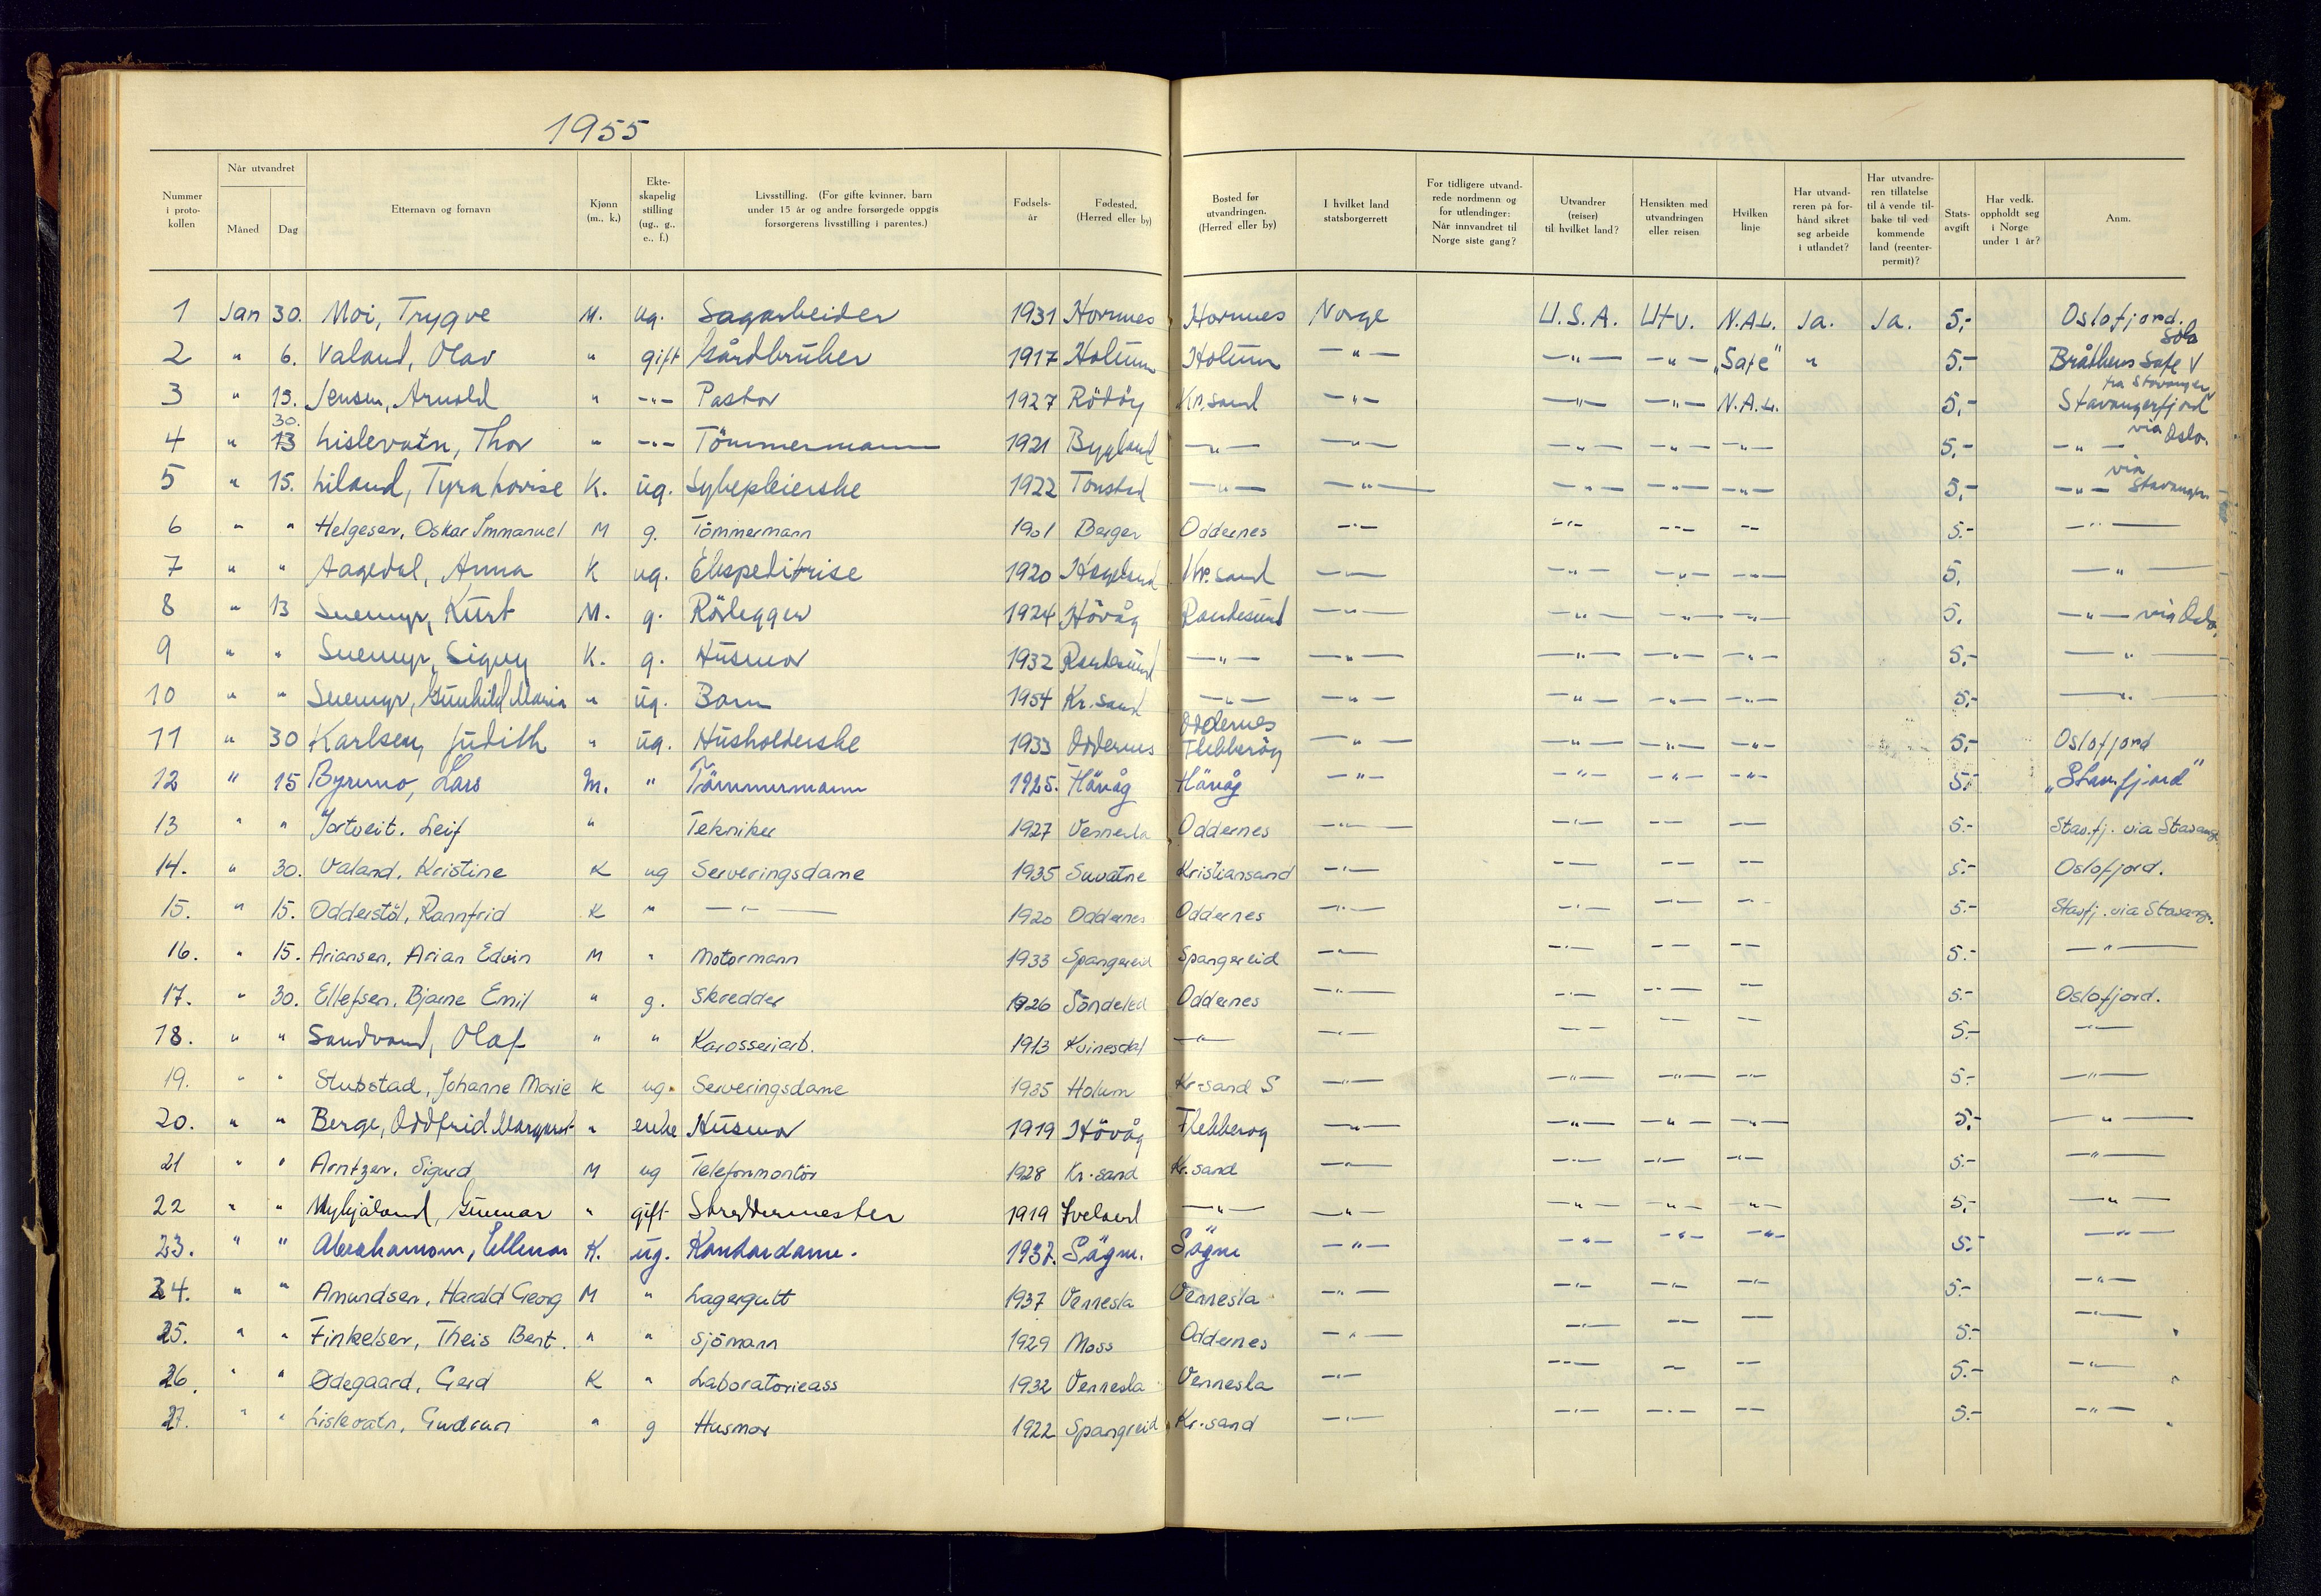 1955
Nummer i proto-kollen | Når utvandret Måned Dag | Etternavn og fornavn | Kjønn (m., k.) | Ekte-skapelig stilling (ug., g., e., f.) | Livsstilling. (For gifte kvinner, barn under 15 år og andre forsørgede oppgis forsørgerens livsstilling i parentes.) | Fødsels-år | Fødested. (Herred eller by) | Bosted før utvandringen. (Herred eller by) | I hvilket land statsborgerrett | For tidligere utvand-rede nordmenn og for utlendinger: Når innvandret til Norge siste gang? | Utvandrer (reiser) til hvilket land? | Hensikten med utvandringen eller reisen | Hvilken linje | Har utvand-reren på for-hånd sikret seg arbeide i utlandet? | Har utvandre-ren tillatelse til å vende til-bake til ved kommende land (reenter-permit)? | Stats-avgift | Har vedk. oppholdt seg i Norge under 1 år? | Anm.
1 Jan 30. Moi, Trygve M. ug. Sagarbeider 1931 Hornnes Hornnes Norge U.S.A. Utv. N.A.L. Ja. Ja. 5,- Oslofjord.
2 " 6. Valand, Olav " gift Gårdbruker 1917 Holum Holum -"- -"- -"- "Safe" " 5.- Bråthens Safe V Sola
3 " 15. Jensen, Arnold " -"- Pastor 1927 Rödöy Kr.sand -"- -"- -"- N.A.L. 5,- Stavangerfjord fra Stavanger
4 " 13 30. Lislevatn, Thor " -"- Tömmermann 1921 Bygland -"- -"- -"- -"- -"- 5,- -"- via Oslo.
5 " 15. Liland, Tyra Lovise K. ug. Sykepleierske 1922 Tonstad -"- -"- -"- -"- -"- 5,- -"- via Stavanger
6 " " Helgesen, Oskar Immanuel M g. Tömmermann 1901 Berger Oddernes -"- -"- -"- -"- 5.- -"-
7 " " Aagedal, Anna K ug. Ekspeditrise 1920 Hægeland Kr.sand -"- -"- -"- -"- 5. -"-
8 " 13 Suemyr, Kurt M. g. Rörlegger 1924 Hövåg Randesund -"- -"- -"- -"- 5. -"- via Oslo.
9 " " Suemyr, Signy K. g. Husmor 1932 Randesund -"- -"- -"- -"- -"- 5,- -"-
10 " " Suemyr, Gunhild Maria " ug. Barn 1954 Kr.sand -"- -"- -"- -"- -"- 5,- -"-
11 " 30 Karlsen, Judith " ug. Husholderske 1933 Oddernes Oddernes Flekkeröy -"- -"- -"- -"- 5,- Oslofjord
12 " 15 Byremo, Lars M. " Tömmermann 1925. Hövåg Hövåg -"- -"- -"- -"- 5.- "Stav.fjord"
13 " " Jortveit. Leif " Tekniker 1927 Vennesla Oddernes -"- -"- -"- -"- 5.- Stav.fj. via Stavang.
14. " 30. Valand, Kristine K ug Serveringsdame 1935 Suvatne Kristiansand -"- -"- -"- -"- 5.- Oslofjord.
15. " 15. Odderstöl, Rannfrid K " -"- 1920 Oddernes Oddernes -"- -"- -"- -"- 5.- Stavfj. via Stavang.
16. " 15. Ariansen, Arian Edvin M " Motormann 1933 Spangereid Spangereid -"- -"- -"- -"- 5.- -"-
17. " 30. Ellefsen, Bjarne Emil " g. Skredder 1926 Söndeled Oddernes -"- -"- -"- -"- 5.- Oslofjord.
18. " " Sandvand, Olaf " " Karosseriarb. 1913 Kvinesdal -"- -"- -"- -"- -"- 5.- -"-
19. " " Stubstad, Johanne Marie K ug. Serveringsdame 1935 Holum Kr.sand S -"- -"- -"- -"- 5.- -"-
20. " " Berge, Oddfrid Margaret " enke Husmor 1919 Hövåg Flekkeroy -"- -"- -"- -"- 5,- -"-
21 " " Arntzen, Sigurd M ug Telefonmontör 1928 Kr.sand Kr.sand -"- -"- -"- -"- 5.- -"-
22 " " Mykjåland, Gunnar " gift Skreddermester 1919 Iveland -"- -"- -"- -"- -"- 5,- -"-
23. " " Abrahamsen, Ellinor K. ug. Kontordame. 1937. Sögne. Sögne -"- -"- -"- -"- 5.- -"-
24. " " Amundsen, Harald Georg M " Lagergutt 1937 Vennesla Vennesla -"- -"- -"- -"- 5.- -"-
25. " " Finkelsen, Theis Bert. " " Sjömann 1929 Moss Oddernes -"- -"- -"- -"- 5.- -"-
26. " " Ødegaard, Gerd K " Laboratorieass 1932 Vennesla Vennesla -"- -"- -"- -"- 5.- -"-
27. " " Lislevatn, Gudrun " g Husmor 1922 Spangreid Kr.sand -"- -"- -"- -"- 5.- -"-